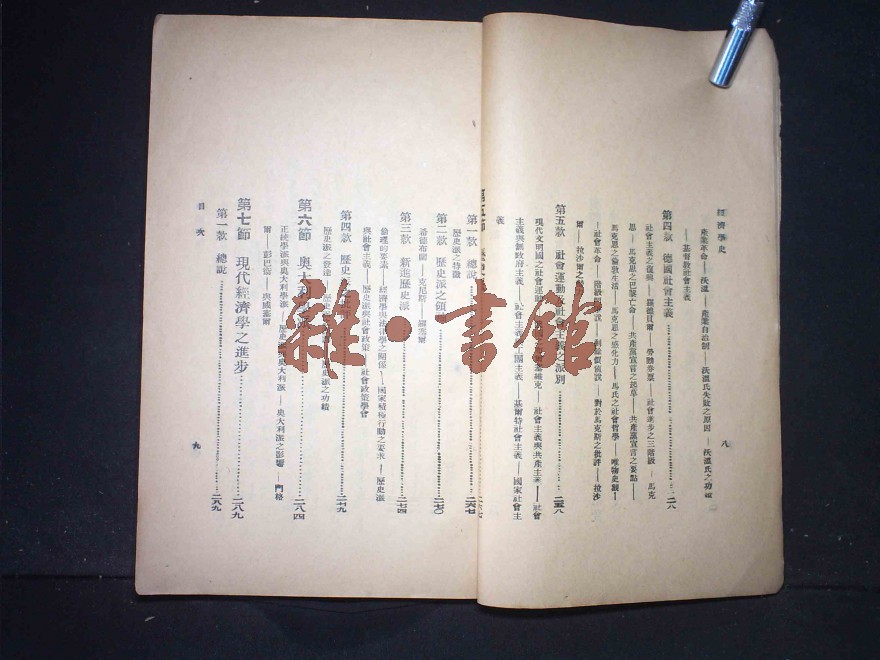 經濟學史
產業革命——沃溫——產業自治制——沃溫氏失敗之原因——沃溫氏之功績
——基督教社會主義
第四款 德國社會主義
社會主義之復興——羅德貝爾——勞動券票——社會進步之三階級——馬克
思——馬克思之巴黎亡命——共產黨宣言之起草——共產黨宣言之要點——
馬克思之倫敦生活——馬克思之感化力——馬氏之社會哲學——唯物史觀——
——社會革命——對於馬克斯之批評——拉沙
爾——拉沙爾之
第五款 社會運動及社會主義之派別……二五八
現代文明國之社會運動——社會主義與共產主義——社會
主義與無政府主義——國主義——基爾特社會主義——國家社會主
義
八
第五節
第一款 總說……二六七
歷史派之特徵
第二款 歷史派之領……二七〇
第三款 新進歷史派……二七四
希德布蘭——克尼斯
倫理的要素——經濟學與法律學之關係——國家積極行動之要求——歷史派
與社會主義——歷史派與社會政策——社會政策學會
第四款 歷史……二七九
歷史派之發達——歷史派之功績
第六節 奧大利……二八四
正統學派與奧大利學派——奧大利派之影響——門格
爾——彭巴衛——與威塞爾
第七節 現代經濟學之進步……二八九
第一款 總說……二八九
目次
九
雜·書館